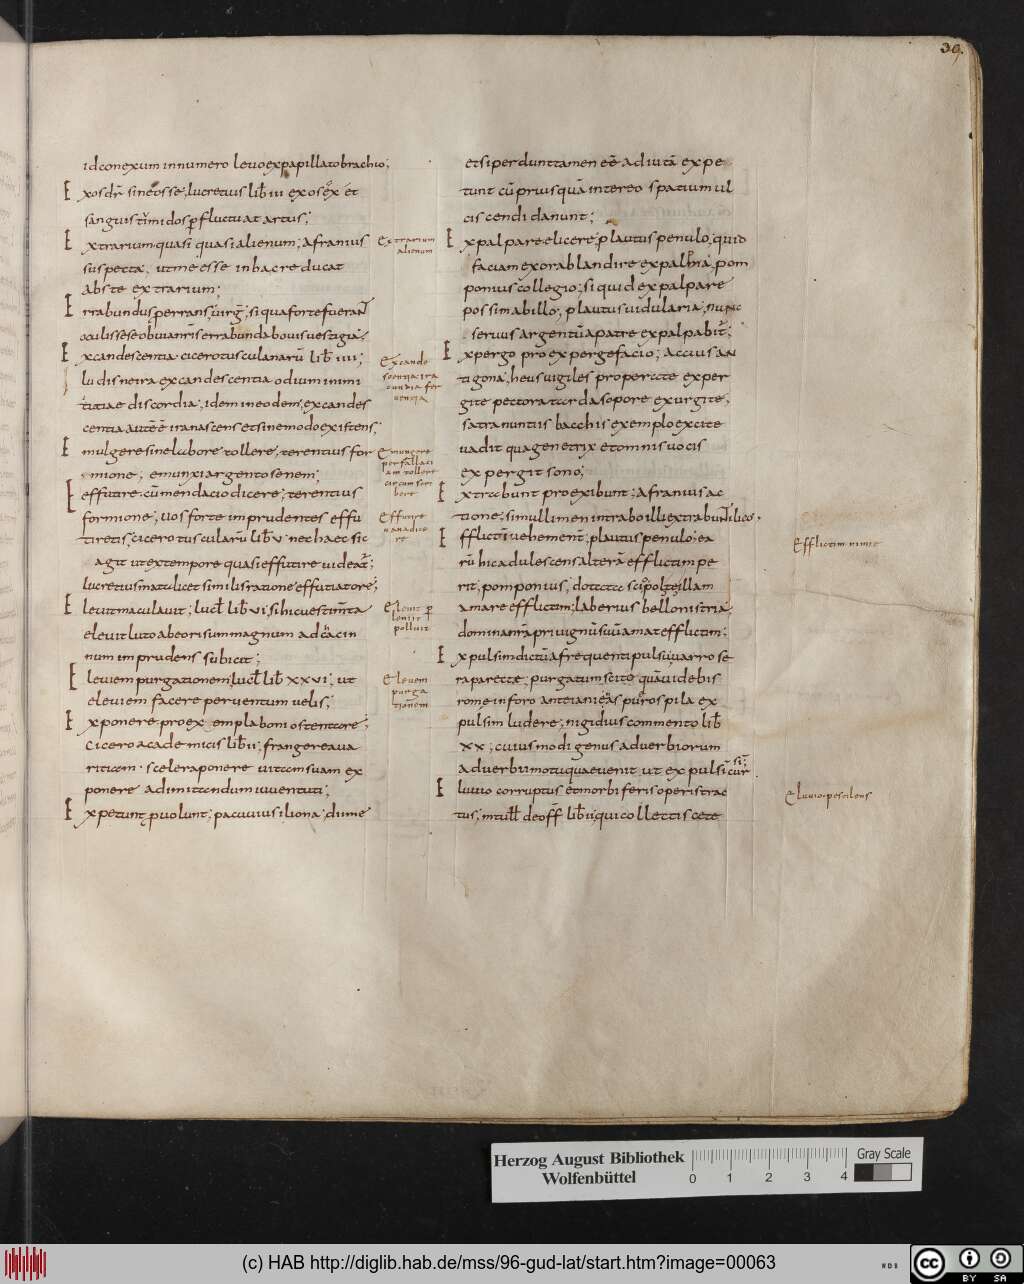 39.
idconexum innumero levo expapillato brachio;
Exos dr̄ sine osse, lucretius lib̄ iii exos ex et
sanguis timidos p̄fluctuat artus;
Extrarium quasi quasi alienum; afranius
suspecta, ut me esse in hac re ducat
abs te extrarium;
Errabundus per errans, virg̅; si qua forte feran̄t
oculis sese obvia nr̄is errabunda bovis vestigia;
Excandescentia cicero tusculanarū lib̄ iiii;
lu dis ne ira excandescentia odium inimi
titiae discordia, idem in eodem, excandes
centia autē ē ira nascens et sine modo existens;
Emulgere sine labore tollere, terentius for
mione; emunxi argento senem;
Effutire cū mendacio dicere; terentius
formione; vos forte imprudentes effu
tiretis, cicero tuscularū lib̄ v nec haec sic
agit ut ex tempore quasi effutire videat̄;
lucretius matulic et similis ratione effutiatore;
Elevit maculavit; lucl̄ lib̄ vi, si hic vestim̄ta
elevit luto ab eo risum magnum ad cacin
num imprudens subicit;
Eleviem purgationem, lucl̄ lib̄ xxvi; ut
eleviem facere per ventum velis;
Exponere pro ex emplaboni ostentare;
cicero academicis lib̄ ii; frangere ava
ritiam scelera ponere vitam suam ex
ponere ad imitandum iuventuti;
Expetunt p̄volunt; pacuvius iliona; dum e
Extrarium
alienum
Excande
scentia ira
cundia fer
uencia
Emungere
per fallaci
am tollere
Effutire
uana dice
re
Elevit p̄
leniit
polluit
Eleviem
purga
tionem
et si perdunt tamen eē ad vitā expe
tunt cū prius quā intereo spatium ul
ciscendi danunt;
Expalpare elicere, plautus penulo, quid
faciam exora blandire expalpa, pom
ponius collegio; si quid expalpare
possim ab illo; plautus vidularia, nunc
servus argentū a patre expalpabit̄;
Expergo pro expergefacio; accius an
tigona, heus vigiles properate exper
gite pectora tarda sopore exurgite,
satranuntiis bacchis exemplo excite
vadit quagenetrix et omnis vocis
expergit sono;
Extrabunt pro exibunt; afranius ac
tione, simul limen intrabo illi extrabun̄t ilico,
Efflictī vehement̄, plautus penulo; ea
rū hic adulescens alterā efflictim pe
rit, pomponius, dotata scipoltes illam
amare efflictim; laberius bellonistria;
domina nr̄a privignū suū amat efflictim;
Expulsim dictū a frequenti pulsu, varro se
ra parette; purgatum scito quā videbis
rome in foro ante lanienas pueros pila ex
pulsim ludere; nigidius commento lib̄
xx; cuius modi genus adverbiorum
adverbii motu quaevenit ut expulsī cursī
Eluvio corruptus et morbiferis operis trac
tus; m tull̄ de off̄ lib̄ ii, qui collectis cete
Efflictim nimie
Eluvio pestilens
Herzog August Bibliothek
Wolfenbüttel
0 1 2 3 4
Gray Scale
(c) HAB http://diglib.hab.de/mss/96-gud-lat/start.htm?image=00063
cc BY SA